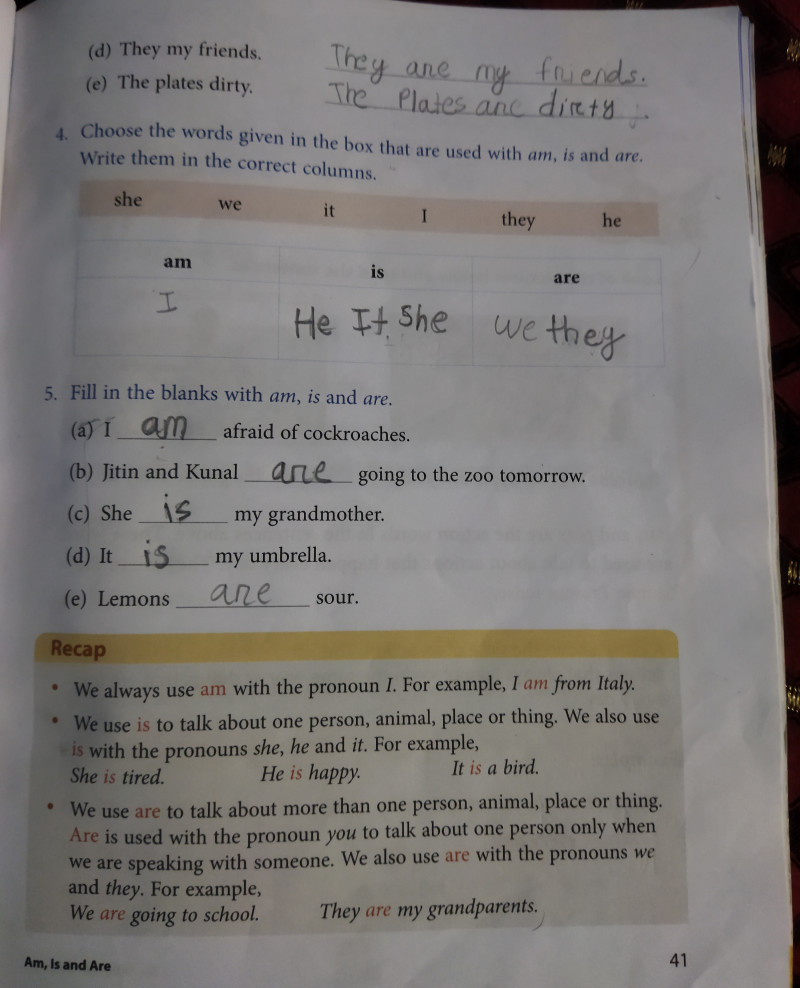 (d) They my friends. They are my friends.
(e) The plates dirty. The Plates are dirty.
4. Choose the words given in the box that are used with am, is and are.
Write them in the correct columns.
she we it I they he
am is are
I He It. She We they
5. Fill in the blanks with am, is and are.
(a) I am afraid of cockroaches.
(b) Jitin and Kunal are going to the zoo tomorrow.
(c) She is my grandmother.
(d) It is my umbrella.
(e) Lemons are sour.
Recap
• We always use am with the pronoun I. For example, I am from Italy.
• We use is to talk about one person, animal, place or thing. We also use
is with the pronouns she, he and it. For example,
She is tired. He is happy. It is a bird.
• We use are to talk about more than one person, animal, place or thing.
Are is used with the pronoun you to talk about one person only when
we are speaking with someone. We also use are with the pronouns we
and they. For example,
We are going to school. They are my grandparents.
Am, Is and Are 41